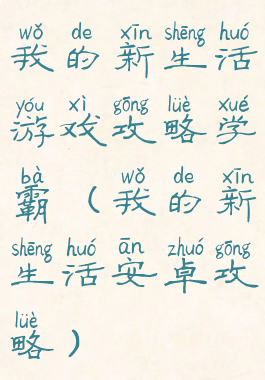 wǒ de xīn shēng huó
我的新生活
yóu xì gōng lüè xué
游戏攻略学
bà wǒ de xīn
霸（我的新
shēng huó ān zhuó gōng
生活安卓攻
lüè
略）